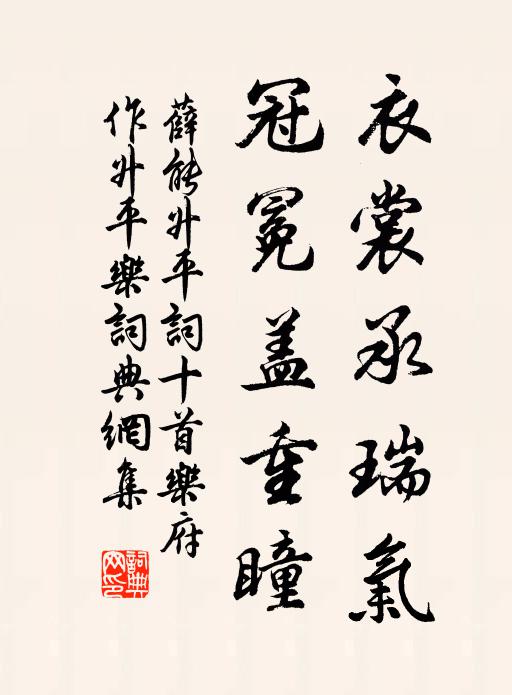 衣裳承瑞氣
冠冕盖重瞳
薛能升平詞十首樂府
作升平樂詞典網集
詞典网印